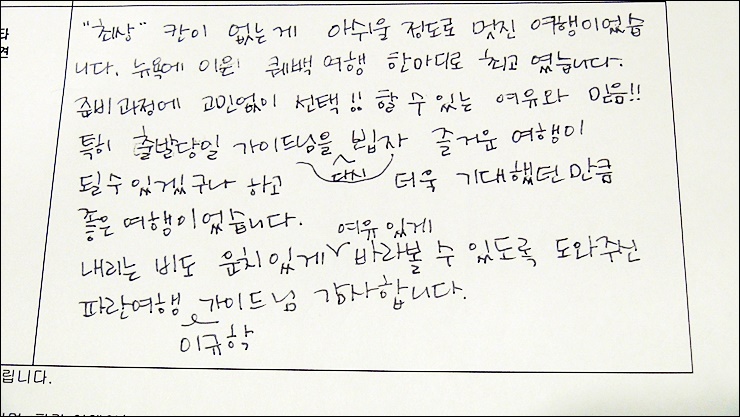 타
견
"최상" 칸이 없는게 아쉬울 정도로 멋진 여행이었습
니다. 뉴욕에 이은 퀘백 여행 한마디로 최고 였습니다.
준비과정에 고민없이 선택!! 할 수 있는 여유와 믿음!!
특히 출발당일 가이드님을 뵙자 즐거운 여행이
다시
될수 있겠구나 하고 더욱 기대했던만큼
좋은 여행이었습니다.
여유있게
내리는 비도 운치있게 바라볼 수 있도록 도와주신
파란여행 가이드님 감사합니다.
이규학
립니다.